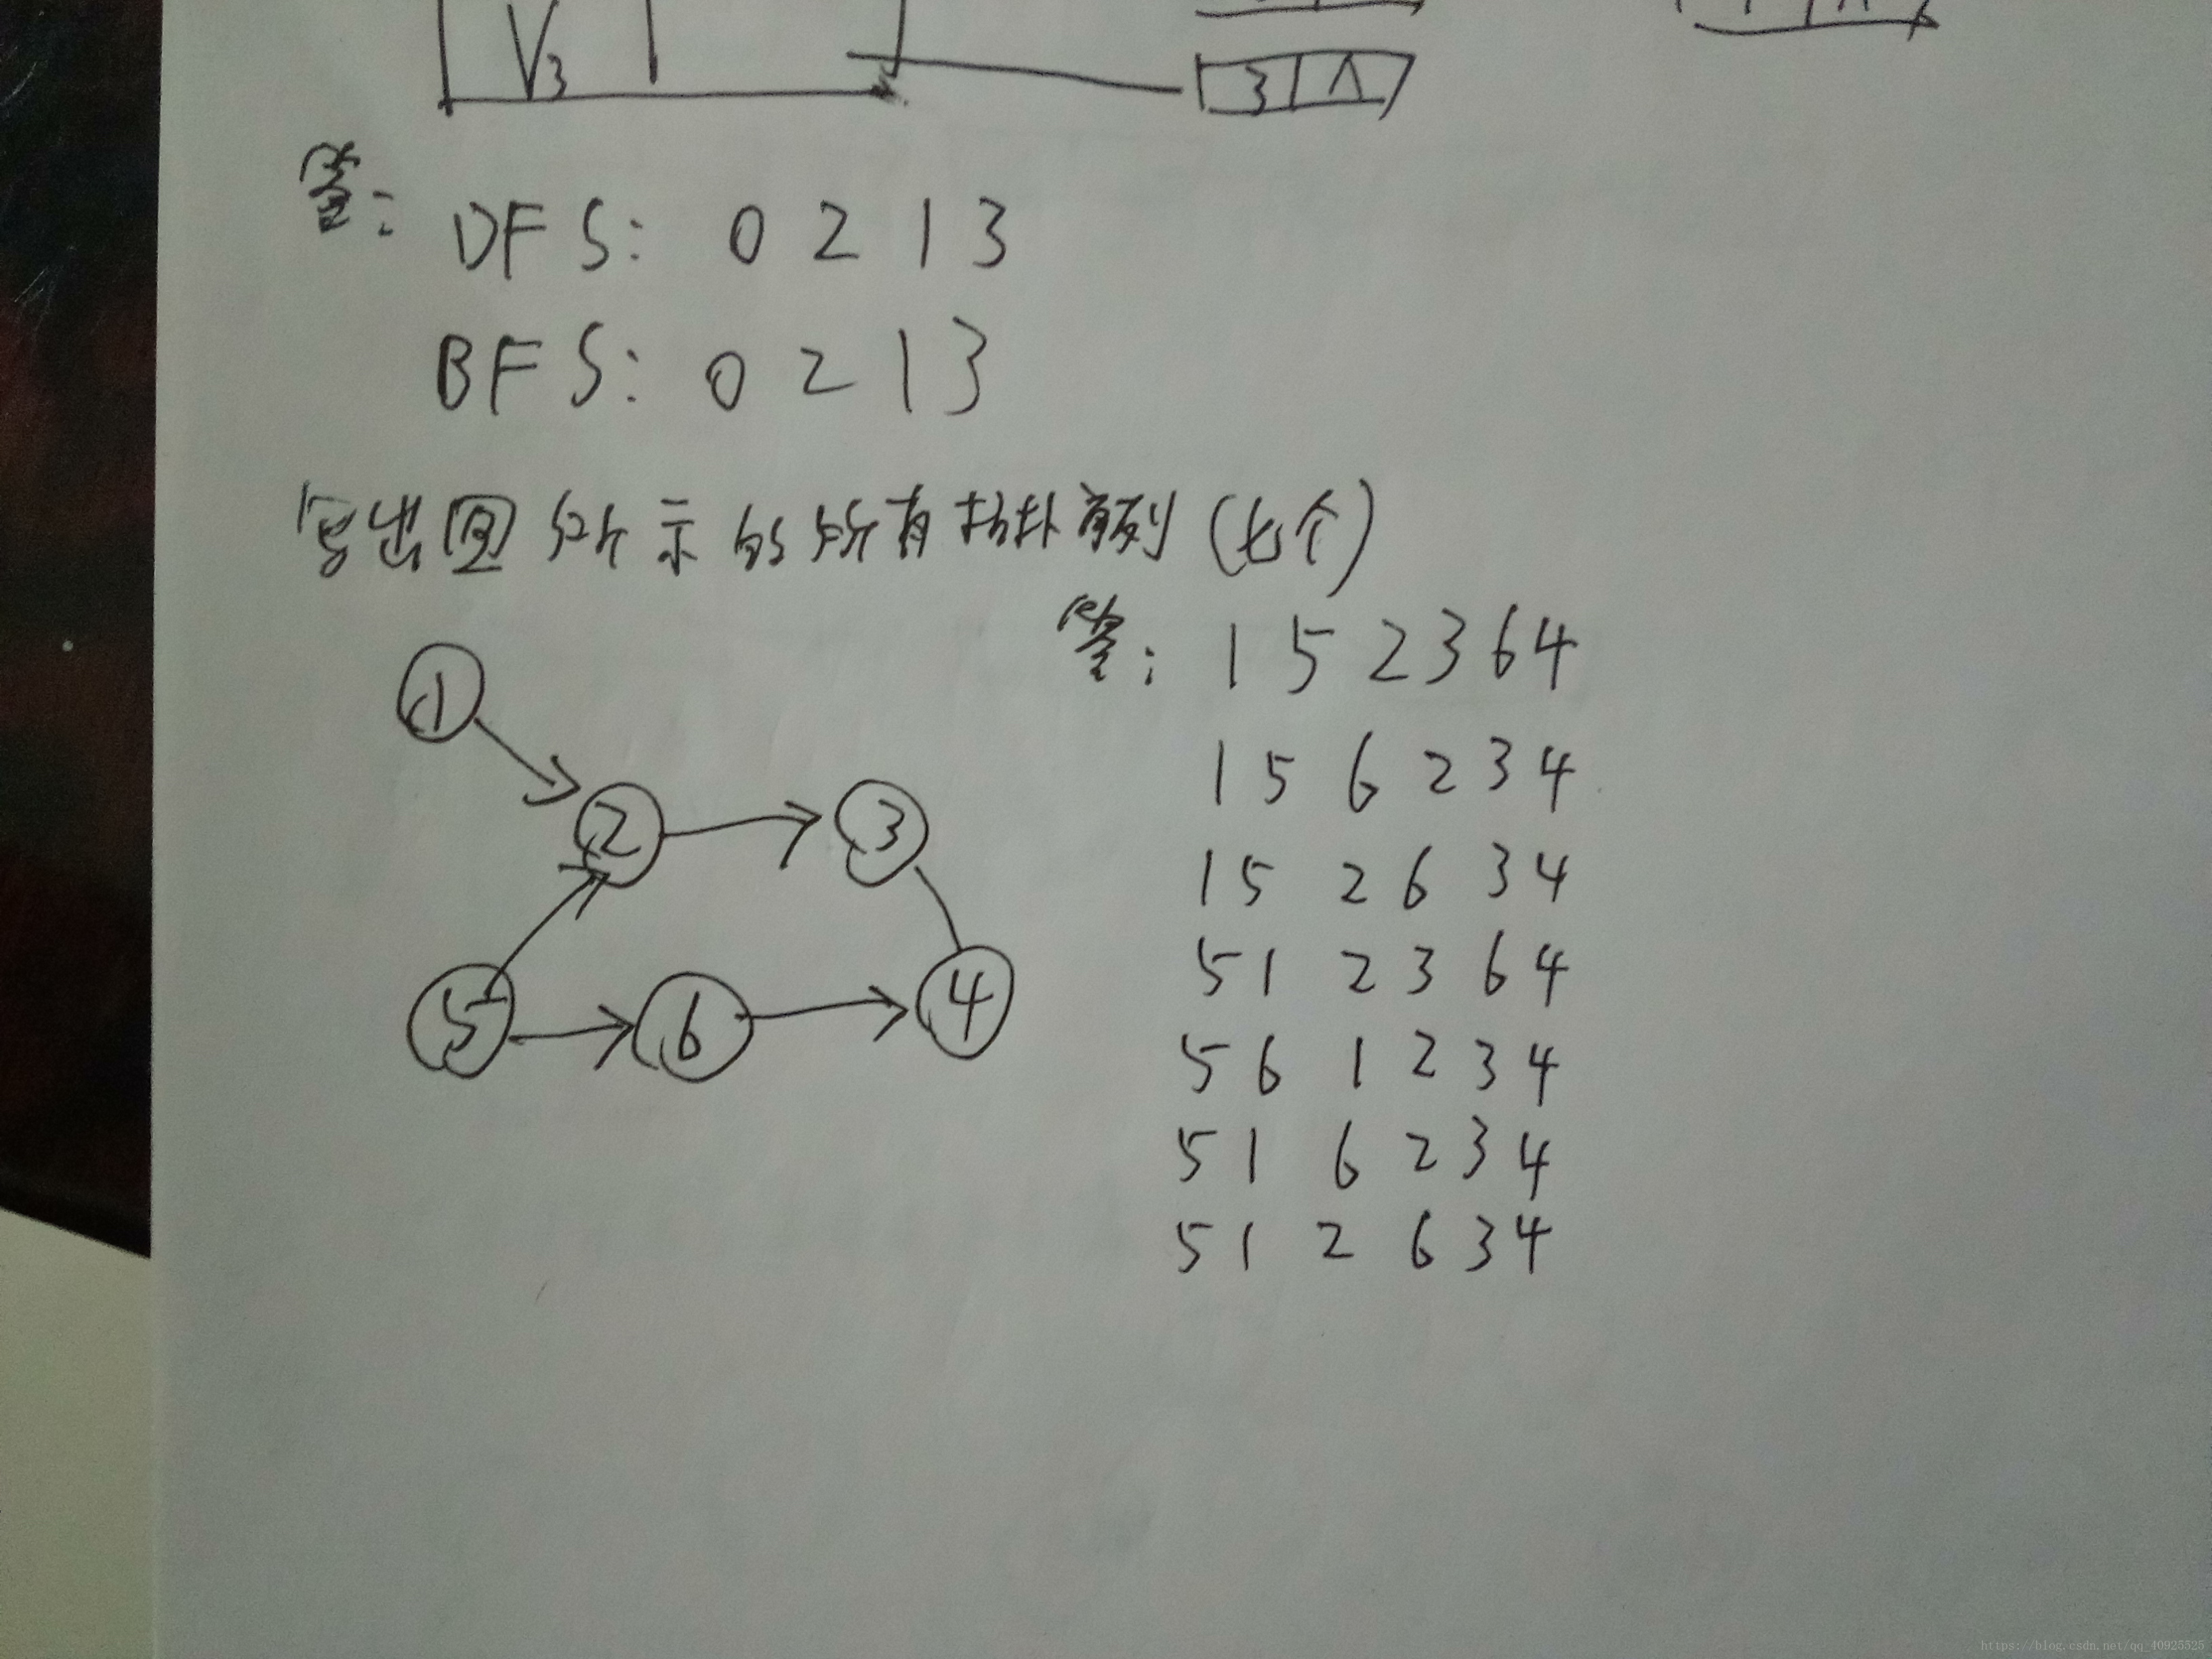 V3
3 ∧
答: DFS: 0 2 1 3
BFS: 0 2 1 3
写出图所示的所有拓扑序列(七个)
答: 1 5 2 3 6 4
1 5 6 2 3 4
1 5 2 6 3 4
5 1 2 3 6 4
5 6 1 2 3 4
5 1 6 2 3 4
5 1 2 6 3 4
1
2
3
5
6
4
https://blog.csdn.net/qq_40925525